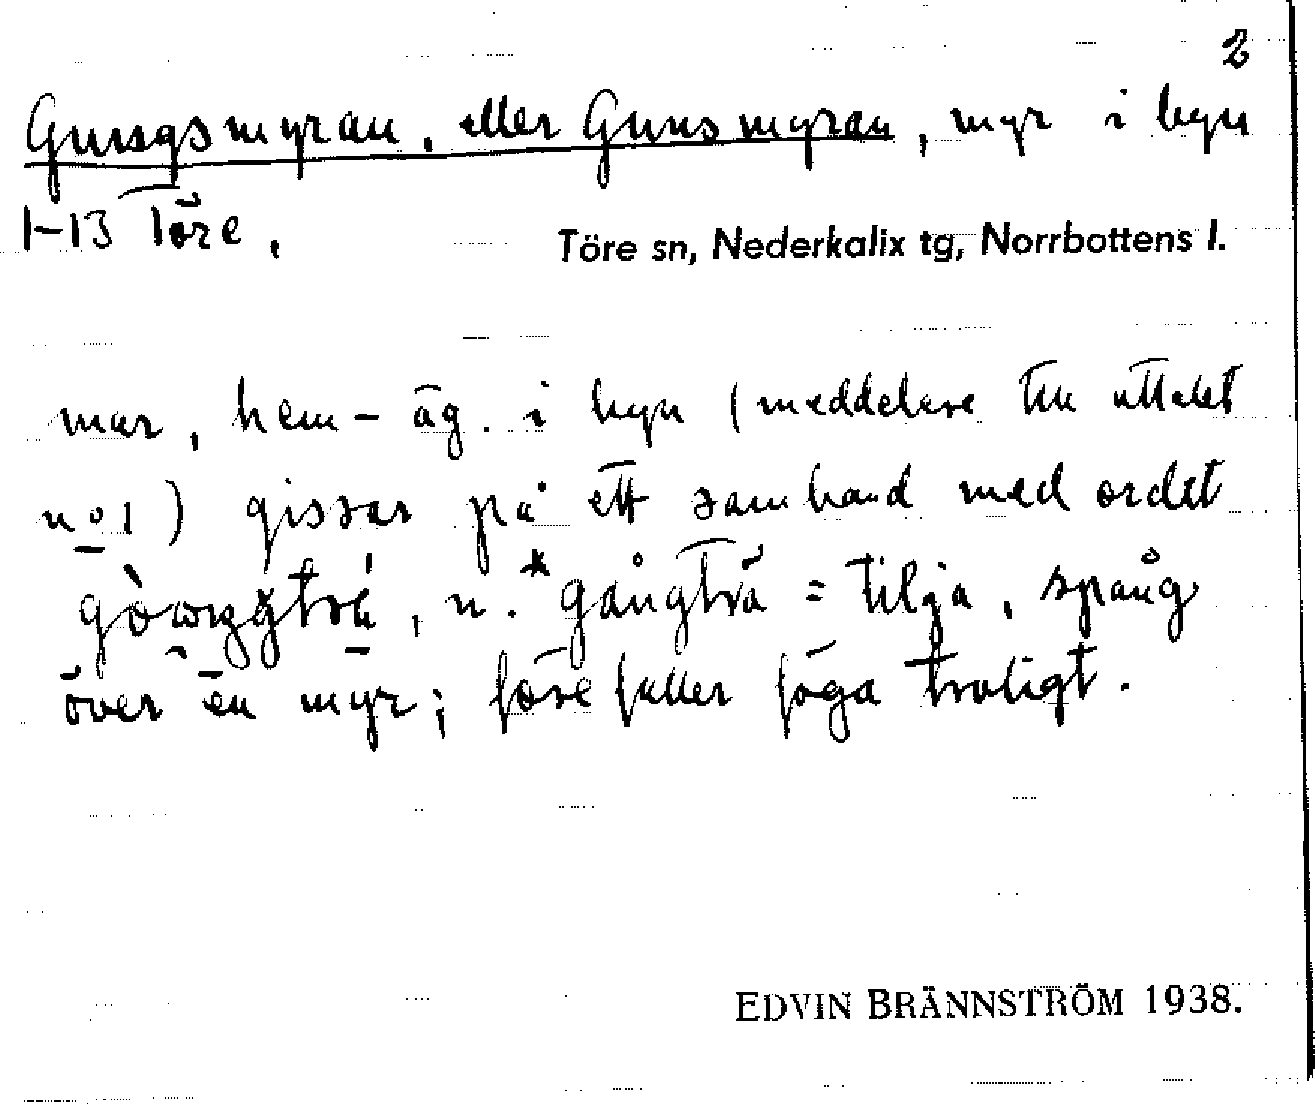 2
Gungsmyran, eller Gunsmyran, myr i byn
1-13 Töre,
Töre sn, Nederkalix tg, Norrbottens l.
mar, hem-äg. i byn (meddelare till uttalet
no 1) gissar på ett samband med ordet
n. *gångträ = tilja, spång
över en myr; förefaller föga troligt.
EDVIN BRÄNNSTRÖM 1938.